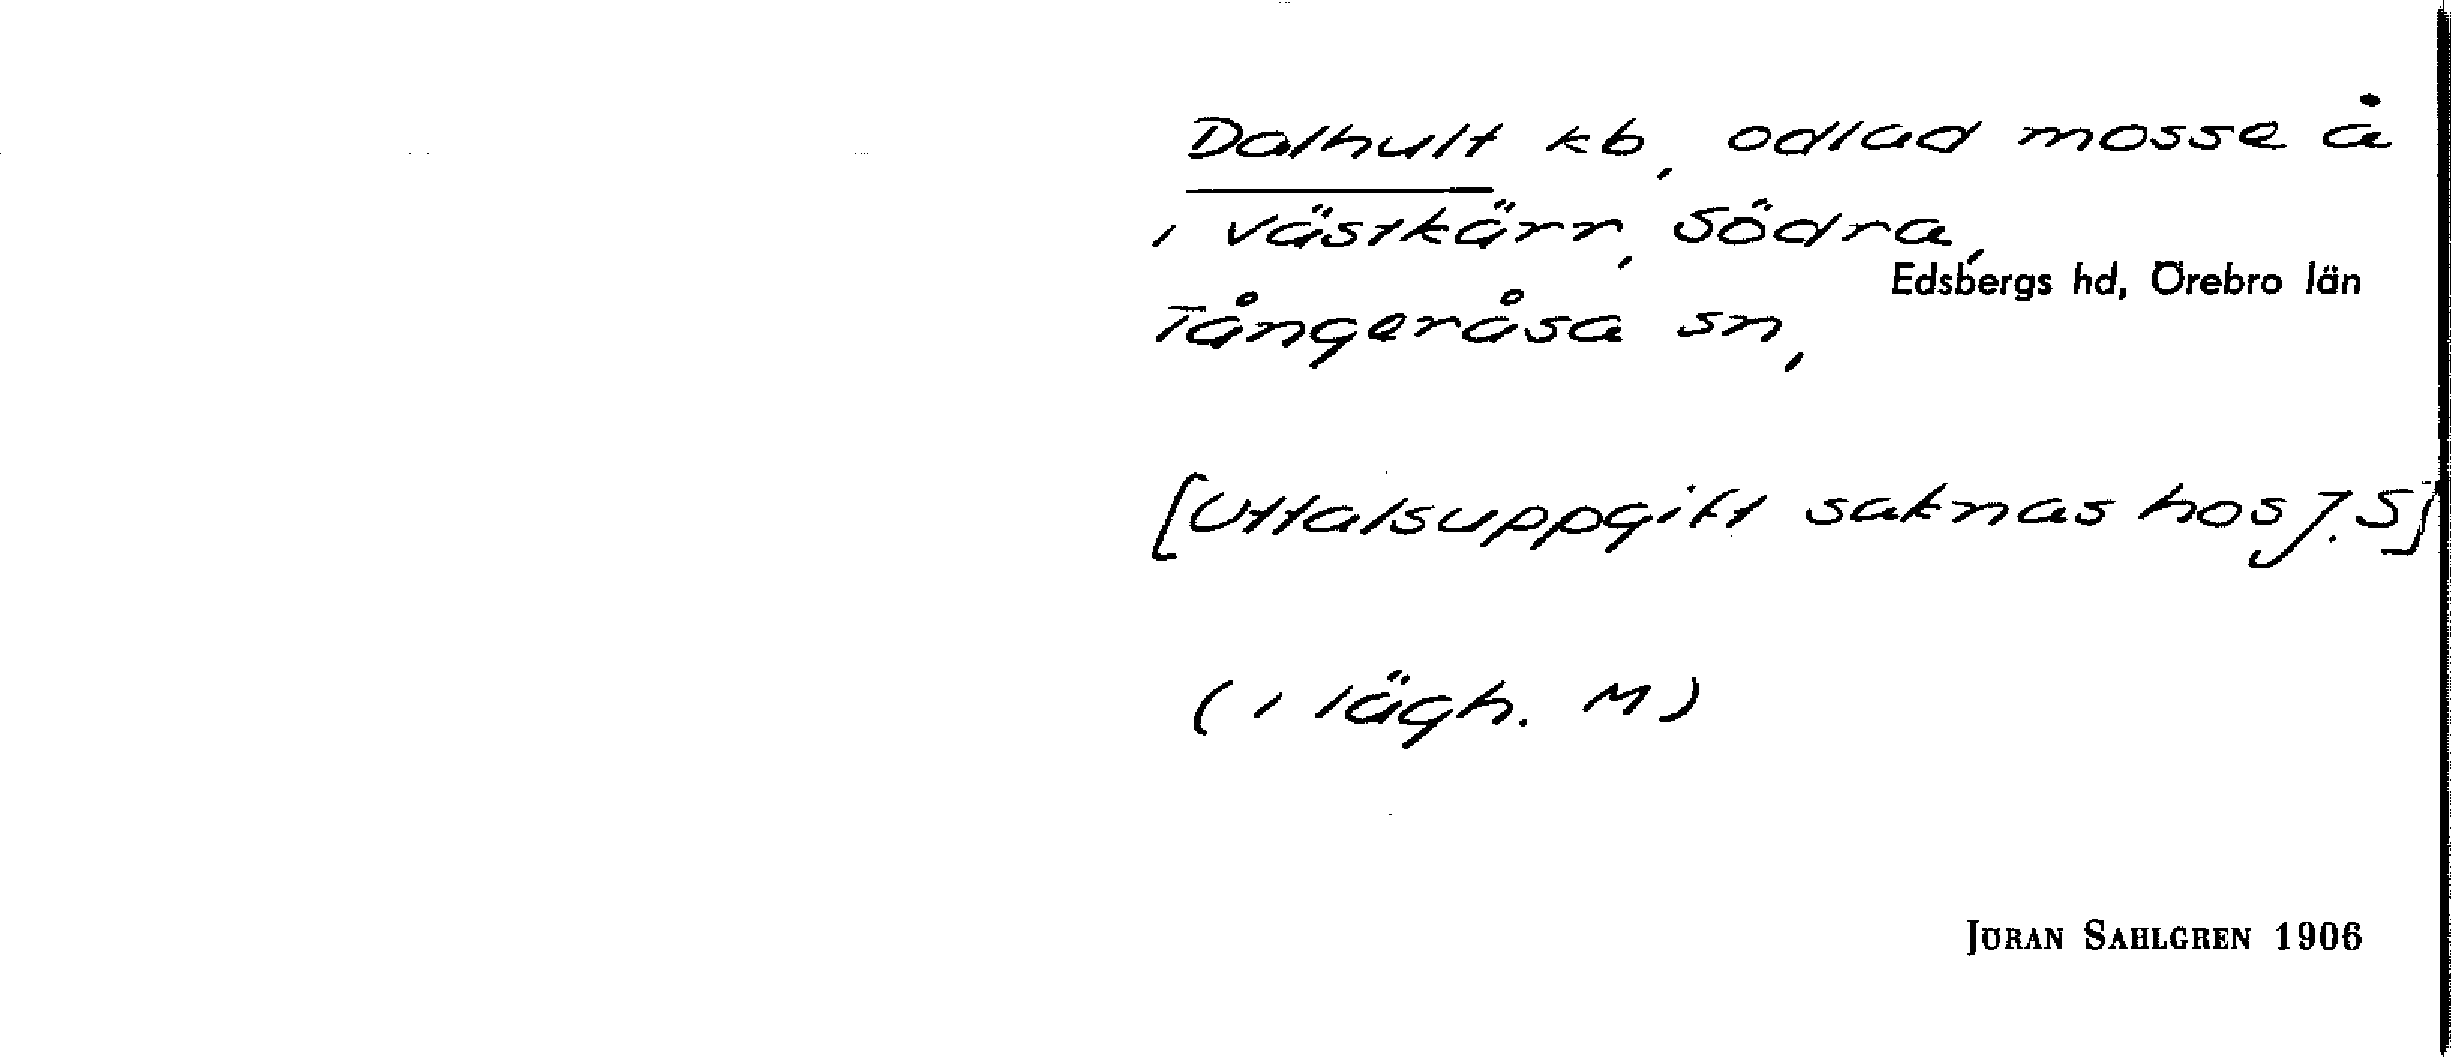 Dalhult kb, odlad mosse å
i Västkärr, Södra,
Edsbergs hd, Örebro län
Tångeråsa sn,
[Uttalsuppgift saknas hos J.S]
(i lägh. M)
JÖRAN SAHLGREN 1906